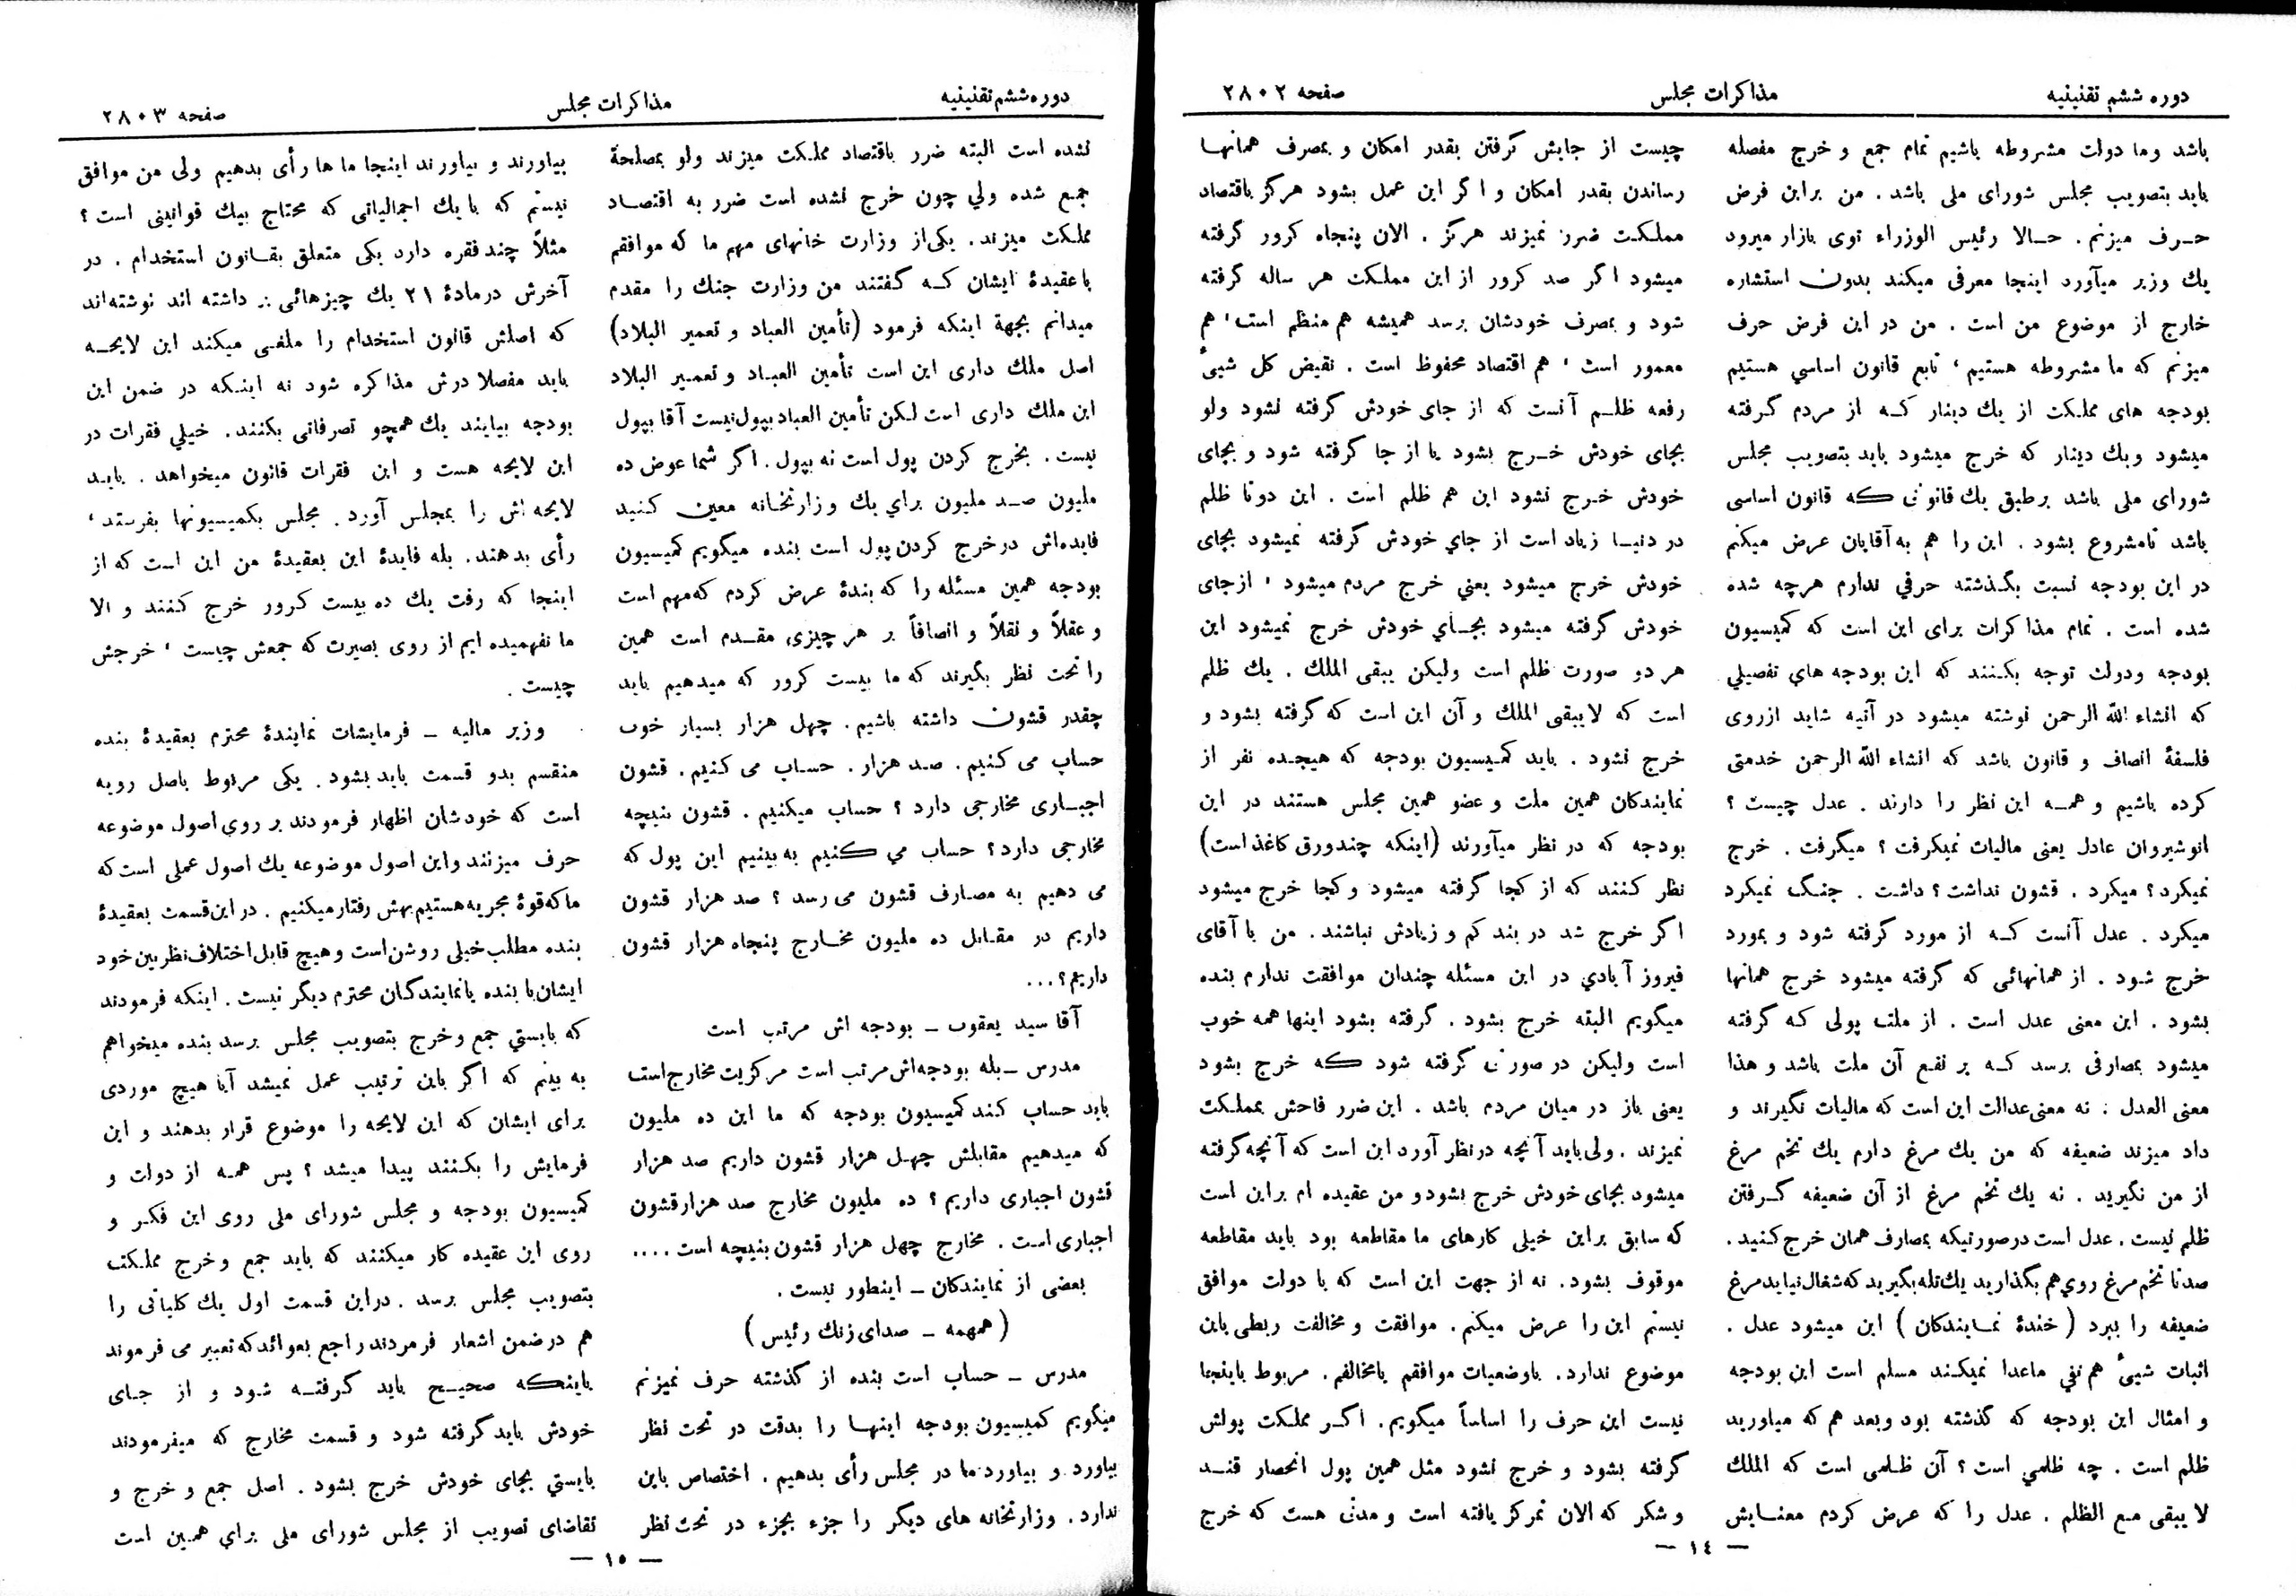 دوره ششم تقنینیه
مذاکرات مجلس
صفحه ۲۸۰۲
باشد وما دولت مشروطه باشیم تمام جمع و خرج مفصله
باید بتصویب مجلس شورای ملی باشد . من براین فرض
حرف میزنم . حالا رئیس الوزراء توی بازار میرود
یك وزیر میآورد اینجا معرفی میکند بدون استشاره
خارج از موضوع من است . من در این فرض حرف
میزنم که ما مشروطه هستیم ، تابع قانون اساسي هستیم
بودجه های مملکت از یك دینار که از مردم گرفته
میشود ویك دینار که خرج میشود باید بتصویب مجلس
شورای ملی باشد برطبق یك قانونی که قانون اساسی
باشد تامشروع بشود . این را هم به آقایان عرض میکنم
در این بودجه نسبت بگذشته حرفي ندارم هرچه شده
شده است . تمام مذاکرات برای این است که کمیسیون
بودجه ودولت توجه بکنند که این بودجه هاي تفصیلي
که انشاء الله الرحمن نوشته میشود در آتیه شاید ازروی
فلسفهٔ انصاف و قانون باشد که انشاء الله الرحمن خدمتی
کرده باشیم و همه این نظر را دارند . عدل چیست ؟
انوشیروان عادل یعنی مالیات نمیگرفت ؟ میگرفت . خرج
نمیکرد ؟ میکرد . قشون نداشت ؟ داشت . جنگ نمیکرد
میکرد . عدل آنست که از مورد گرفته شود و بمورد
خرج شود . از همانهائی که گرفته میشود خرج همانها
بشود . این معنی عدل است . از ملت پولی که گرفته
میشود بمصارفی برسد که بر نفع آن ملت باشد و هذا
معنی العدل . نه معنی عدالت این است که مالیات نگیرند و
داد میزند ضعیفه که من یك مرغ دارم یك تخم مرغ
از من نگیرید . نه یك تخم مرغ از آن ضعیفه گرفتن
ظلم نیست . عدل است درصورتیکه بمصارف همان خرج کنید .
صدتا تخم مرغ روي هم بگذارید یك تله بگیرید که شغال نیاید مرغ
ضعیفه را ببرد ( خندهٔ نمایندکان ) این میشود عدل .
اثبات شییٔ هم نفي ماعدا نمیکند مسلم است این بودجه
و امثال این بودجه که گذشته بود وبعد هم که میاورید
ظلم است . چه ظلمي است ؟ آن ظلمی است که الملك
لا یبقی مع الظلم . عدل را که عرض کردم معنایش
چیست از جایش گرفتن بقدر امکان و بمصرف همانها
رساندن بقدر امکان و اگر این عمل بشود هرگز باقتصاد
مملکت ضرر نمیزند هرگز . الان پنجاه کرور گرفته
میشود اگر صد کرور از این مملکت هر ساله گرفته
شود و بمصرف خودشان برسد همیشه هم منظم است ، هم
معمور است ، هم اقتصاد محفوظ است . نقیض کل شییٔ
رفعه ظلم آنست که از جای خودش گرفته نشود ولو
بجای خودش خرج بشود یا از جا گرفته شود و بجای
خودش خرج نشود این هم ظلم است . این دوتا ظلم
در دنیا زیاد است از جاي خودش گرفته نمیشود بجای
خودش خرج میشود یعني خرج مردم میشود ، ازجای
خودش گرفته میشود بجای خودش خرج نمیشود این
هر دو صورت ظلم است ولیکن یبقی الملك . یك ظلم
است که لایبقی الملك و آن این است که گرفته بشود و
خرج نشود . باید کمیسیون بودجه که هیجده نفر از
نمایندکان همین ملت و عضو همین مجلس هستند در این
بودجه که در نظر میآورند (اینکه چندورق کاغذ است)
نظر کنند که از کجا گرفته میشود وکجا خرج میشود
اگر خرج شد در بند کم و زیادش نباشند . من با آقای
فیروز آبادي در این مسئله چندان موافقت ندارم بنده
میگویم البته خرج بشود . گرفته بشود اینها همه خوب
است ولیکن در صورتی گرفته شود که خرج بشود
یعنی باز در میان مردم باشد . این ضرر فاحش بمملکت
نمیزند . ولی باید آنچه درنظر آورد این است که آنچه گرفته
میشود بجای خودش خرج بشود و من عقیده ام براین است
که سابق براین خیلی کارهای ما مقاطعه بود باید مقاطعه
موقوف بشود . نه از جهت این است که با دولت موافق
نیستم این را عرض میکنم . موافقت و مخالفت ربطی باین
موضوع ندارد . باوضعیات موافقم یامخالفم . مربوط باینجا
نیست این حرف را اساساً میگویم . اگر مملکت پولش
گرفته بشود و خرج نشود مثل همین پول انحصار قند
و شکر که الان تمرکز یافته است و مدتی هست که خرج
— ١٤ —
دوره ششم تقنینیه
مذاکرات مجلس
صفحه ۲۸۰۳
نشده است البته ضرر باقتصاد مملکت میزند ولو بمصلحة
جمع شده ولي چون خرج نشده است ضرر به اقتصاد
مملکت میزند . یکی از وزارت خانهای مهم ما که موافقم
با عقیدهٔ ایشان که گفتند من وزارت جنك را مقدم
میدانم بجهة اینکه فرمود (تأمین العباد و تعمیر البلاد)
اصل ملك داری این است تأمین العباد و تعمیر البلاد
این ملك داری است لکن تأمین العباد بپول نیست آقا بپول
نیست . بخرج کردن پول است نه بپول . اگر شما عوض ده
ملیون صد ملیون براي یك وزارتخانه معین کنید
فایده اش درخرج کردن پول است بنده میگویم کمیسیون
بودجه همین مسئله را که بندهٔ عرض کردم که مهم است
و عقلاً و نقلاً و انصافاً بر هر چیزی مقدم است همین
را تحت نظر بگیرند که ما بیست کرور که میدهیم باید
چقدر قشون داشته باشیم . چهل هزار بسیار خوب
حساب می کنیم . صد هزار . حساب می کنیم . قشون
اجباری مخارجی دارد ؟ حساب میکنیم . قشون بنیچه
مخارجی دارد ؟ حساب مي کنیم به بینیم این پول که
می دهیم به مصارف قشون می رسد ؟ صد هزار قشون
داریم در مقابل ده ملیون مخارج پنجاه هزار قشون
داریم ؟ . . .
آقا سید یعقوب ــ بودجه اش مرتب است
مدرس ــ بله بودجه اش مرتب است مرکزیت مخارج است
باید حساب کند کمیسیون بودجه که ما این ده ملیون
که میدهیم مقابلش چهل هزار قشون داریم صد هزار
قشون اجباری داریم ؟ ده ملیون مخارج صد هزار قشون
اجباری است . مخارج چهل هزار قشون بنیچه است . . . .
بعضی از نمایندکان ــ اینطور نیست .
( همهمه ــ صدای زنك رئیس )
مدرس ــ حساب است بنده از گذشته حرف نمیزنم
میگویم کمیسیون بودجه اینها را بدقت در تحت نظر
بیاورد و بیاورد ما در مجلس رأی بدهیم . اختصاص باین
ندارد . وزارتخانه های دیگر را جزء بجزء در تحت نظر
بیاورند و بیاورند اینجا ما ها رأی بدهیم ولی من موافق
نیستم که با یك اجمالیاتی که محتاج بیك قوانینی است ؟
مثلاً چند فقره دارد یکی متعلق بقانون استخدام . در
آخرش درمادهٔ ۲۱ یك چیزهائی بر داشته اند نوشته اند
که اصلش قانون استخدام را ملغی میکند این لایحه
باید مفصلا درش مذاکره شود نه اینکه در ضمن این
بودجه بیایند یك همچو تصرفاتی بکنند . خیلي فقرات در
این لایحه هست و این فقرات قانون میخواهد . باید
لایحه اش را بمجلس آورد . مجلس بکمیسیونها بفرستد ،
رأی بدهند . بله فایدهٔ این بعقیدهٔ من این است که از
اینجا که رفت یك ده بیست کرور خرج کنند و الا
ما نفهمیده ایم از روی بصیرت که جمعش چیست ، خرجش
چیست .
وزیر مالیه ــ فرمایشات نمایندهٔ محترم بعقیدهٔ بنده
منقسم بدو قسمت باید بشود . یکی مربوط باصل رویه
است که خودشان اظهار فرمودند بر روی اصول موضوعه
حرف میزنند و این اصول موضوعه یك اصول عملی است که
ما که قوهٔ مجریه هستیم بهش رفتار میکنیم . در این قسمت بعقیدهٔ
بنده مطلب خیلی روشن است و هیچ قابل اختلاف نظر بین خود
ایشان با بنده یا نمایندگان محترم دیگر نیست . اینکه فرمودند
که بایستي جمع وخرج بتصویب مجلس برسد بنده میخواهم
به بینم که اگر باین ترتیب عمل نمیشد آیا هیچ موردی
برای ایشان که این لایحه را موضوع قرار بدهند و این
فرمایش را بکنند پیدا میشد ؟ پس همه از دولت و
کمیسیون بودجه و مجلس شورای ملی روی این فکر و
روی این عقیده کار میکنند که باید جمع و خرج مملکت
بتصویب مجلس برسد . دراین قسمت اول یك کلیاتی را
هم در ضمن اشعار فرمردند راجع بعوائد که تعبیر می فرموند
باینکه صحیح باید گرفته شود و از جای
خودش باید گرفته شود و قسمت مخارج که میفرمودند
بایستي بجای خودش خرج بشود . اصل جمع و خرج و
تقاضای تصویب از مجلس شورای ملی براي همین است
— ١٥ —